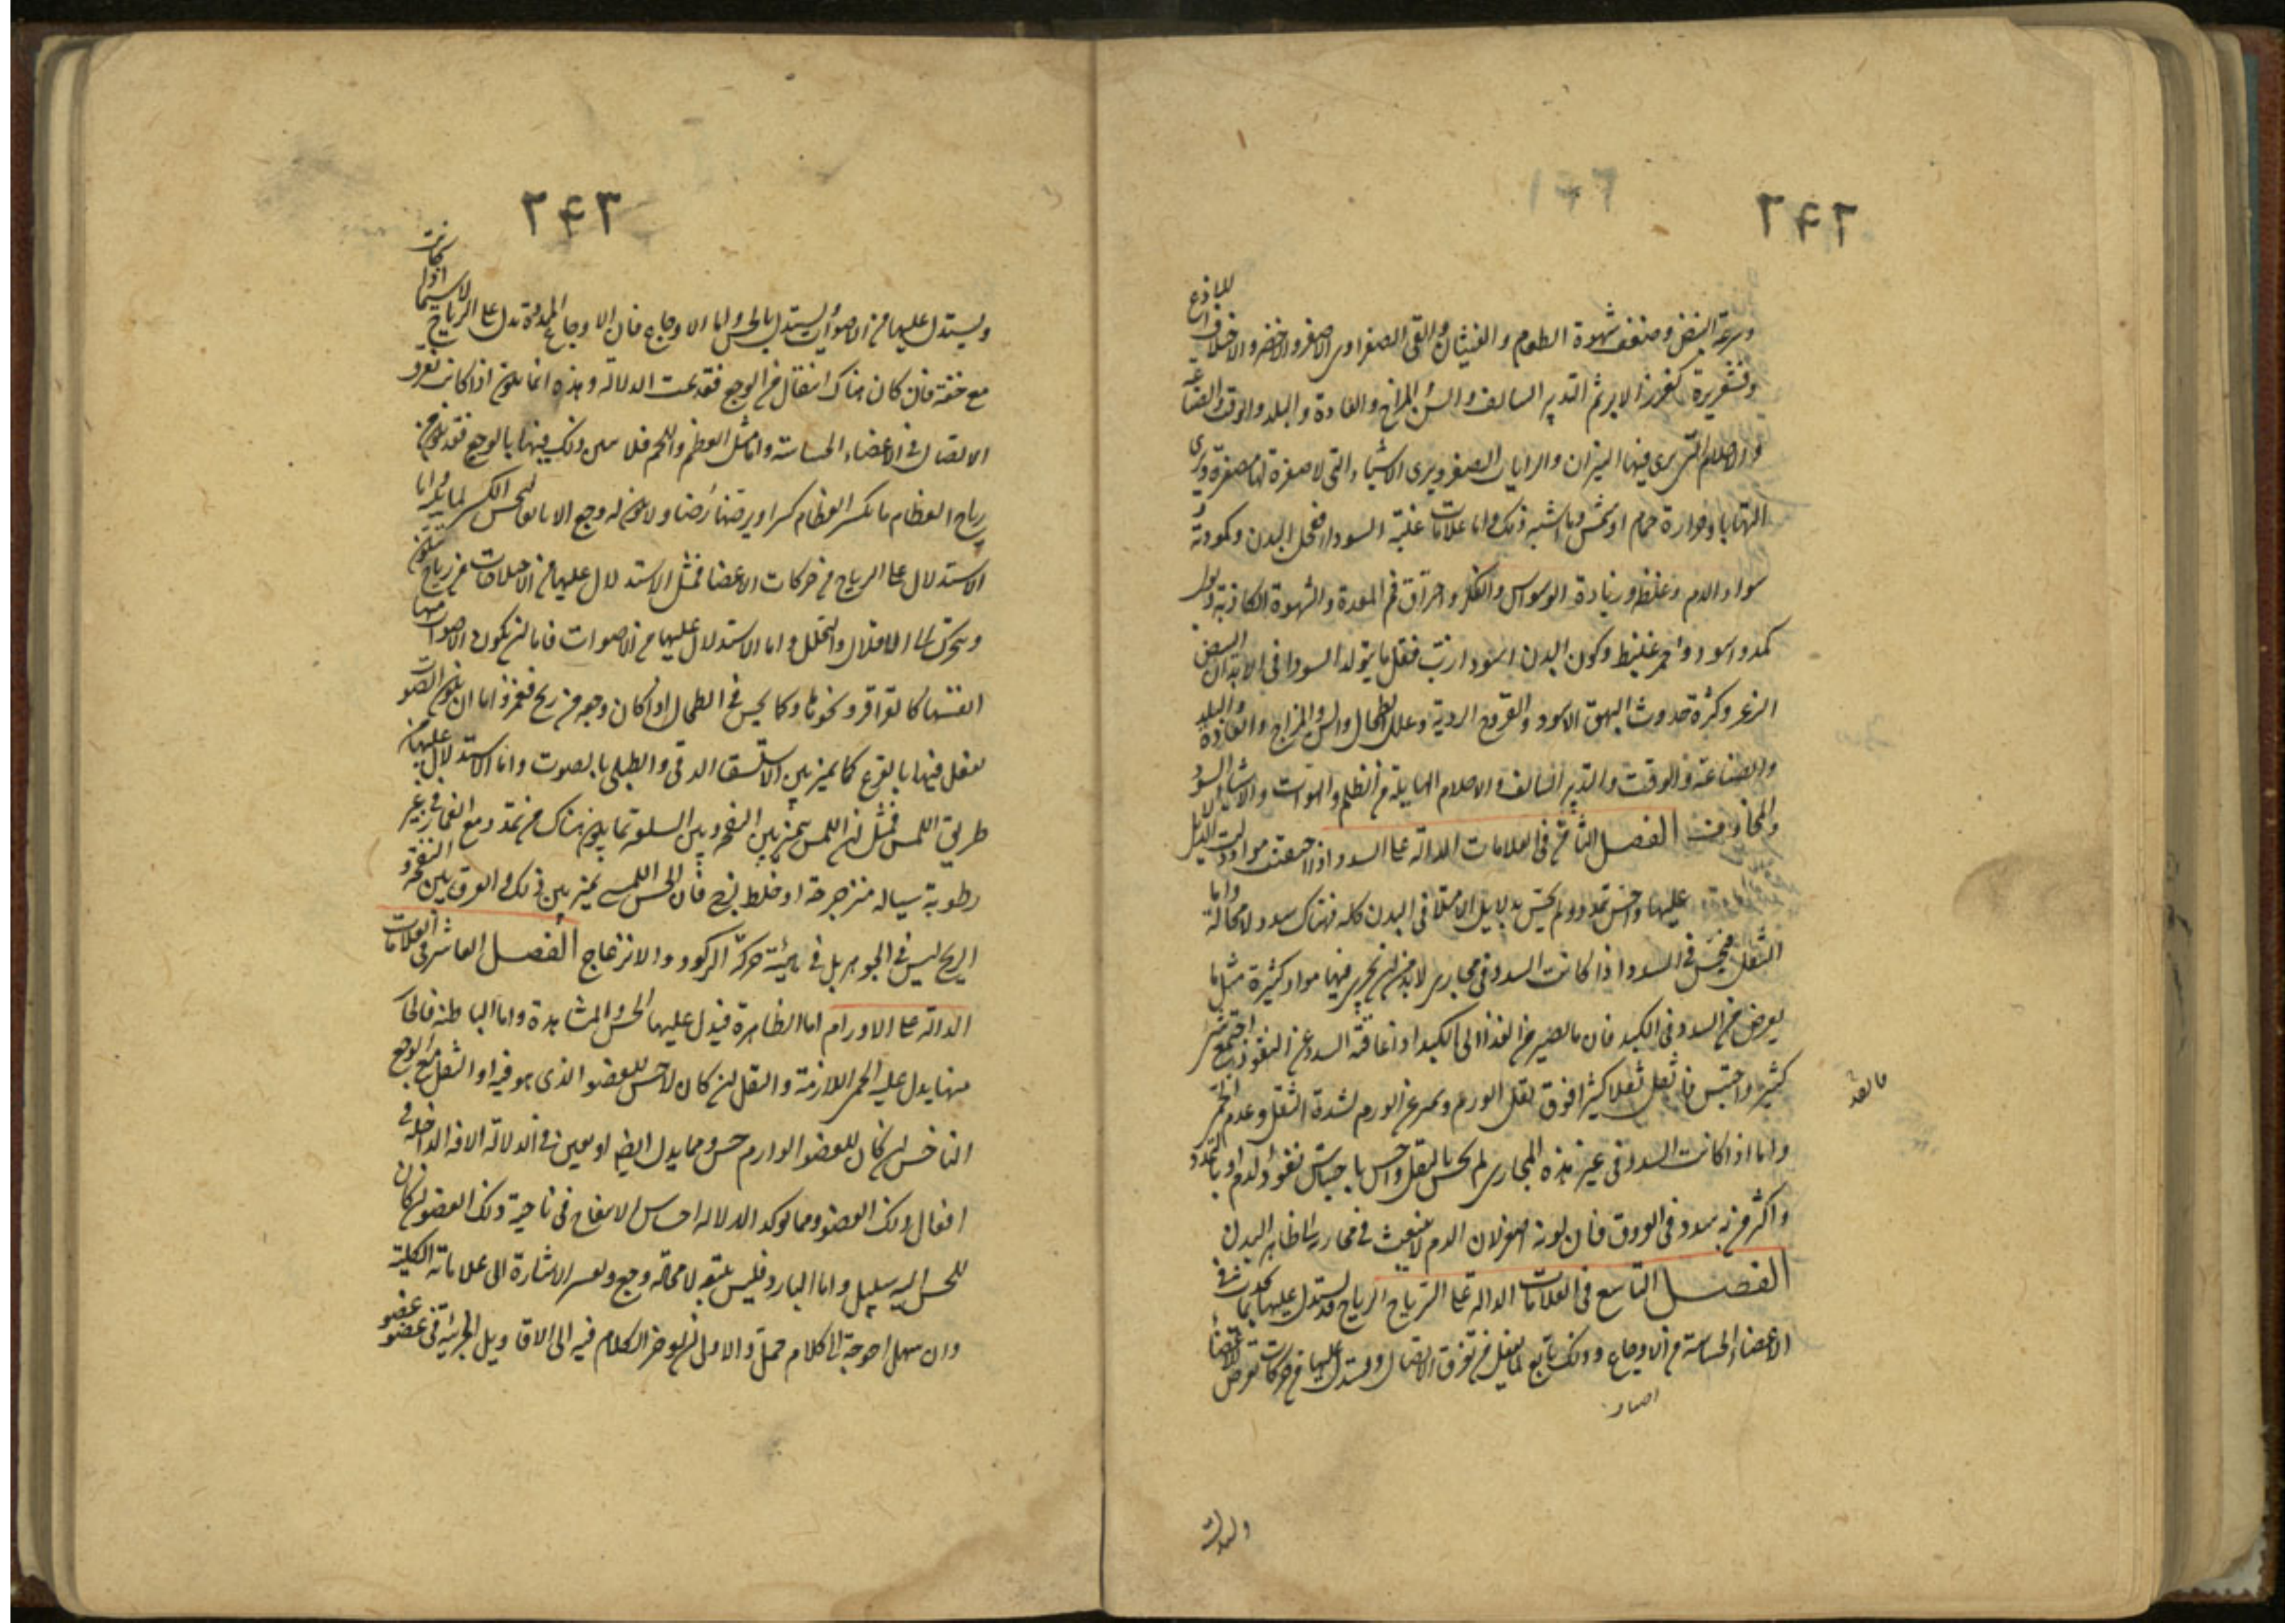 ٢٤٢
وسرعة النبض وضعف شهوة الطعام والغثيان والقى الصفراوى الاصفر والاخضر والاختلاف اللذاع
وقشعريرة كغرز الابر ثم التدبير السالف والسن والمزاج والعادة والبلد والوقت والصناعة
والاحلام التى يرى فيها النيران والرايات الصفر ويرى الاشياء التى لا صفرة لها مصفرة ويرى
التهابا وحرارة حمام او شمس وما اشبه ذلك واما علامات غلبة السوداء فقحل البدن وكمودته و
سواد الدم وغلظه وزيادة الوسواس والفكر واحتراق فم المعدة والشهوة الكاذبة وبول
كمد واسود واحمر غليظ وكون البدن اسود ازب فقل ما يتولد السودا فى الابدان البيض
الزعر وكثرة حدوث البهق الاسود والقروح الردية وعلل الطحال والسن والمزاج والعادة والبلد
والصناعة والوقت والتدبير السالف والاحلام الهايلة من الظلم والهوات والاشيا السود
والمخاوف الفصل الثامن فى العلامات الدالة على السدد اذا احتبست مواد ودلت الدلايل
عليها واحس تمدد ولم يحس بدلايل الامتلا فى البدن كله فهناك سدد لا محالة واما
الثقل فيحس فى السدد اذا كانت السدد فى مجارى لابد من ان يجرى فيها مواد كثيرة مثل ما
يعرض من السدد فى الكبد فان ما يصير من الغذا الى الكبد اذا عاقته السدد عن النفوذ اجتمع شى
كثير واحتبس فاثقل ثقلا كثيرا فوق ثقل الورم ويميز عن الورم لشدة الثقل وعدم الحمى
واما اذا كانت السدد فى غير هذه المجارى لم يحس بالثقل واحس باحتباس نفوذ الدم او بالتمدد
واكثر من به سدد فى العروق فان لونه اصفر لان الدم لا ينبعث فى مجاريه الى ظاهر البدن
الفصل التاسع فى العلامات الدالة على الرياح الرياح قد يستدل عليها بما يحدث فى
الاعضاء الحساسة من الاوجاع وذلك تابع لما يفعل من تفرق الاتصال ويستدل عليها من حركات تعرض للاعضاء
٢٤٣
ويستدل عليها من الاصوات ويستدل بالحس واما الاوجاع فان الاوجاع الممددة تدل على الرياح لاسيما اذا كانت
مع خفة فان كان هناك انتقال من الوجع فقد تمت الدلالة وهذه انما يكون اذا كانت تفرق
الاتصال فى الاعضاء الحساسة واما مثل العظم واللحم فلا يبين ذلك فيها بالوجع فقد يكون من
رياح العظام ما يكسر العظام كسرا ويرضها رضا ولا يكون له وجع الا تابعا لحس الكسر لما يليه واما
الاستدلال على الرياح من حركات الاعضا فمثل الاستدلال عليها من الاختلاجات من رياح تتكون
ويتحرك الى الاقلال والتحلل واما الاستدلال عليها من الاصوات فاما ان يكون الاصوات منها
انفسها كالقراقر ونحوها وكما يحس فى الطحال اذا كان وجعه من ريح فغمز واما ان يكون الصوت
يفعل فيها بالقرع كما يميز بين الاستسقا الزقى والطبلى بالصوت واما الاستدلال عليها من
طريق اللمس فمثل ان اللمس يميز بين النفخة وبين السلعة بما يكون هناك من تمدد مع انغماز فى غير
رطوبة سيالة مترجرجة او خلط لزج فان الحس اللمسى يميز بين ذلك والفرق بين النفخة و
الريح ليس فى الجوهر بل فى هيئة حركة الركود والانزعاج الفصل العاشر فى العلامات
الدالة على الاورام اما الظاهرة فيدل عليها الحس والمشاهدة واما الباطنة فالحار
منها يدل عليه الحمى اللازمة والثقل ان كان لا حس للعضو الذى هو فيه او الثقل مع الوجع
الناخس ان كان للعضو الوارم حس ومما يدل ايضا او يعين فى الدلالة الافة الداخلة فى
افعال ذلك العضو ومما يوكد الدلالة احساس الانتفاخ فى ناحية ذلك العضو ان كان
للحس اليه سبيل واما البارد فليس يتبعه لا محالة وجع ويعسر الاشارة الى علاماته الكلية
وان سهل احوجت الى كلام ممل والاولى ان يوخر الكلام فيه الى الاقاويل الجزئية فى عضو عضو